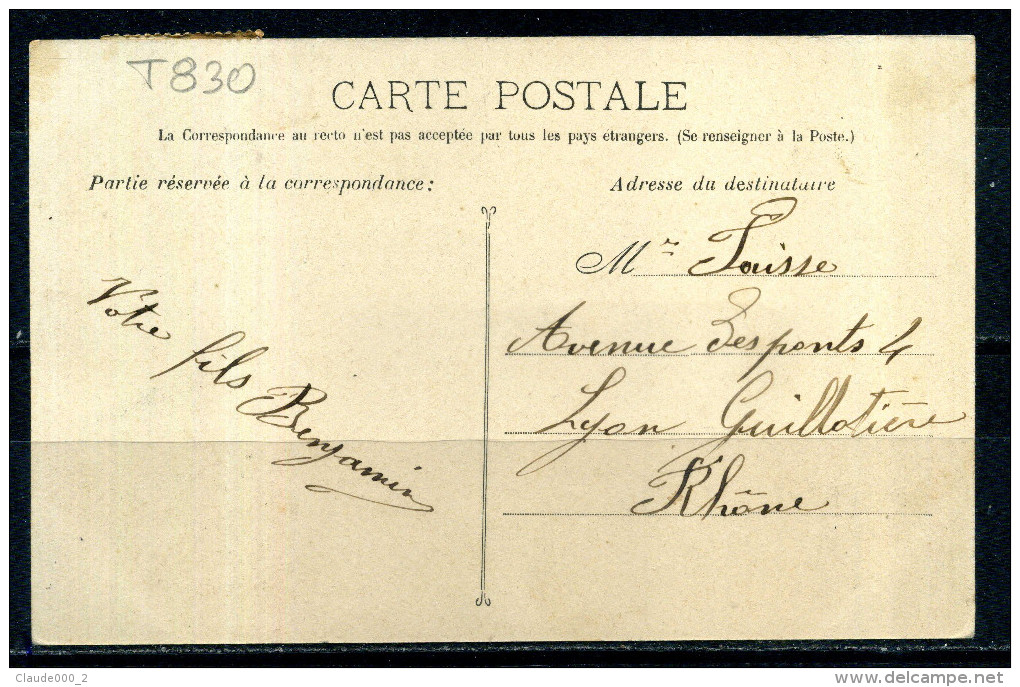 T830
CARTE POSTALE
La Correspondance au recto n'est pas acceptée par tous les pays étrangers. (Se renseigner à la Poste.)
Partie réservée à la correspondance:
Votre fils Benjamin
Adresse du destinataire
Mr
Avenue des ponts 4
Lyon Guillotière
Rhône
Claude000_2
delcampe.net